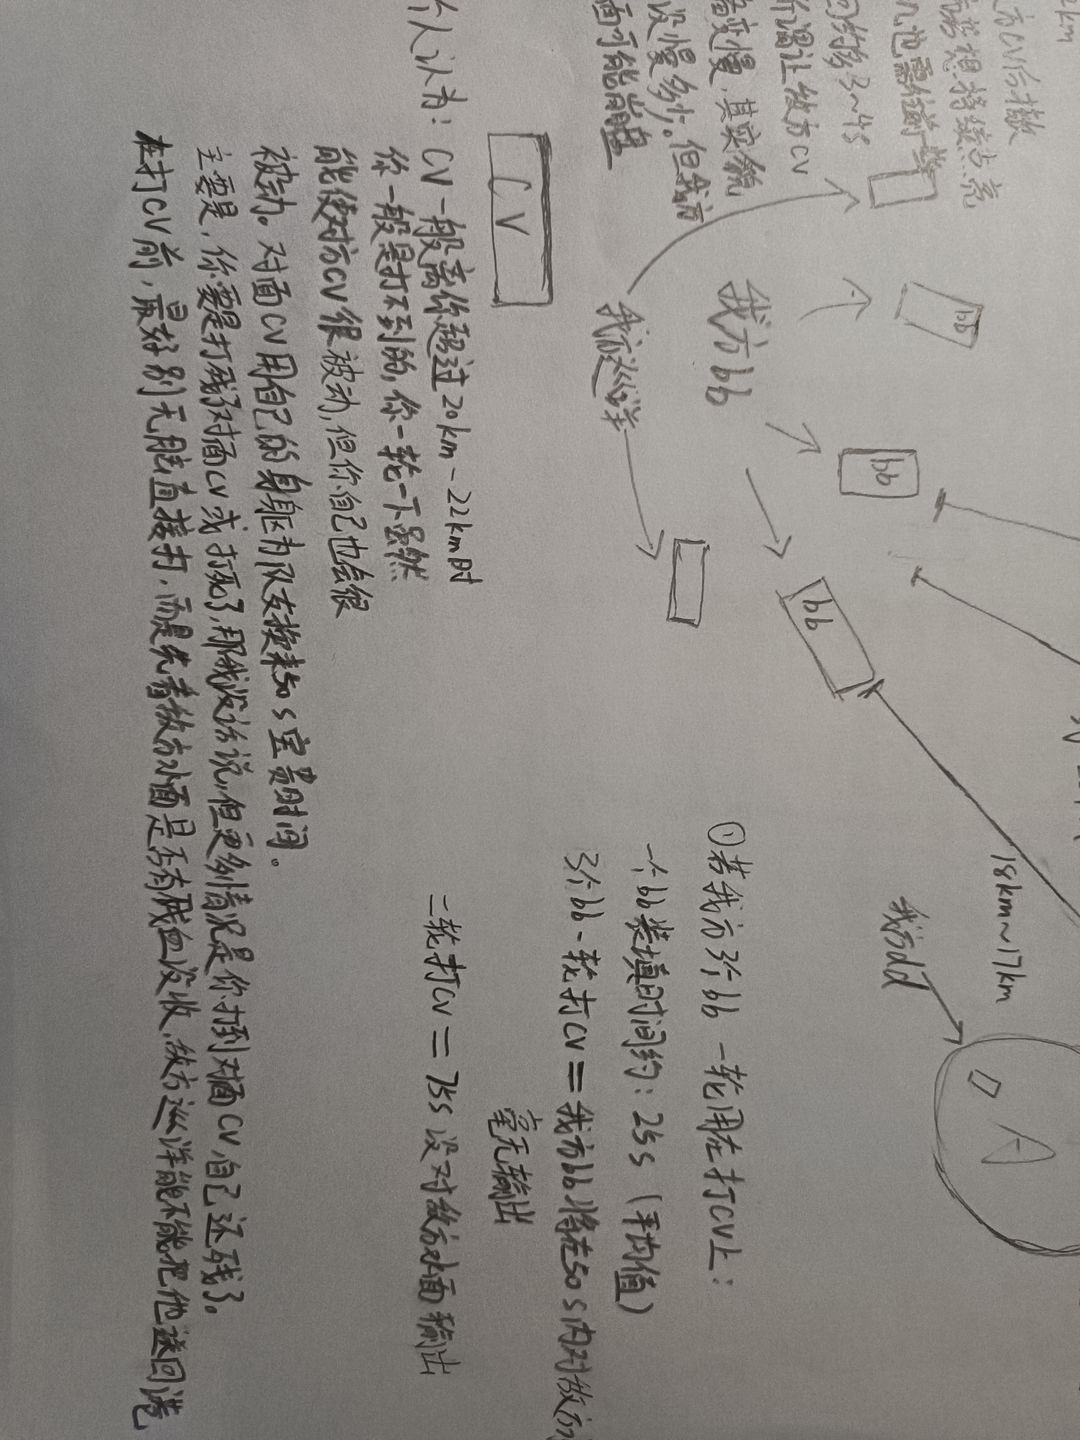 2km
方CV后撤
需想持续点亮
机也需往前
约多3~4s
所谓让敌方CV
变慢,其实就
没慢多少。但我方
面可能
bb
bb
bb
我方bb
我方巡洋
18km~17km
我方dd
A
①若我方3个bb 一轮用在打CV上:
一个bb装填时间约:25s(平均值)
3个bb一轮打CV=我方bb将在50s内对敌方
毫无输出
二轮打CV=75s没对敌方水面输出
CV
个人认为:CV一般离你超过20km-22km时
你一般是打不到的,你一轮一下虽然
能使对方CV很被动,但你自己也会很
被动。对面CV用自己的身躯为队友换来50s宝贵时间。
主要是,你要是打残了对面CV或打死了,那我没话说,但更多情况是你打到对面CV,自己还残了。
在打CV前,最好别无脑直接打,而是先看敌方水面是否有残血没收,敌方巡洋能不能把他送回港